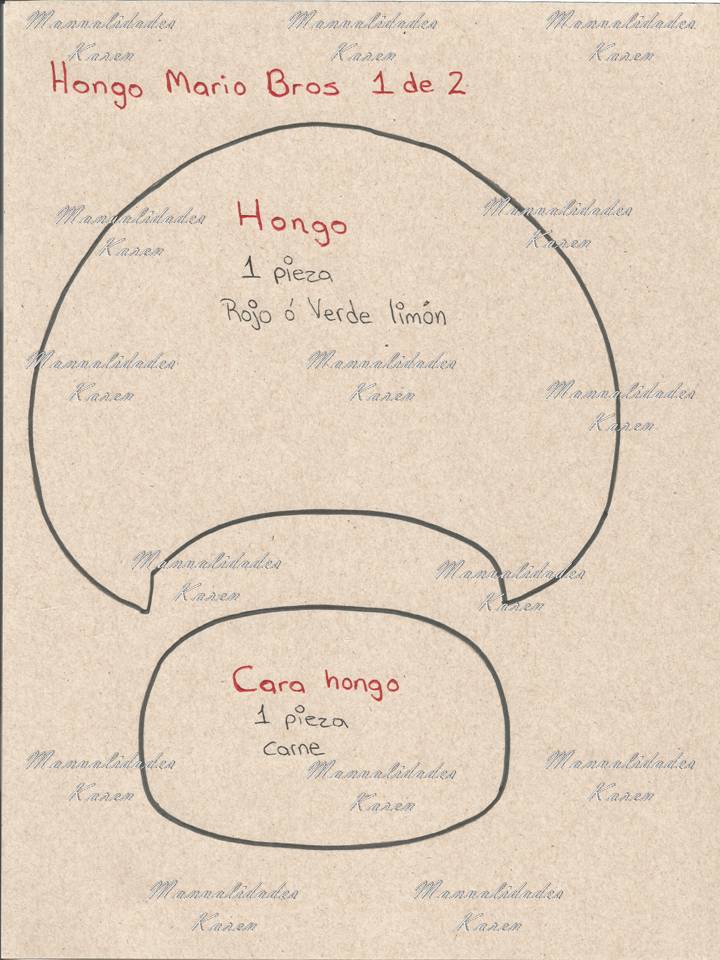 Manualidades
Karen
Manualidades
Karen
Manualidades
Karen
Hongo Mario Bros 1 de 2
Manualidades
Karen
Hongo
Manualidades
Karen
1 pieza
Rojo ó Verde limón
Manualidades
Karen
Manualidades
Karen
Manualidades
Karen
Manualidades
Karen
Manualidades
Karen
Cara hongo
1 pieza
Carne
Manualidades
Karen
Manualidades
Karen
Manualidades
Karen
Manualidades
Karen
Manualidades
Karen